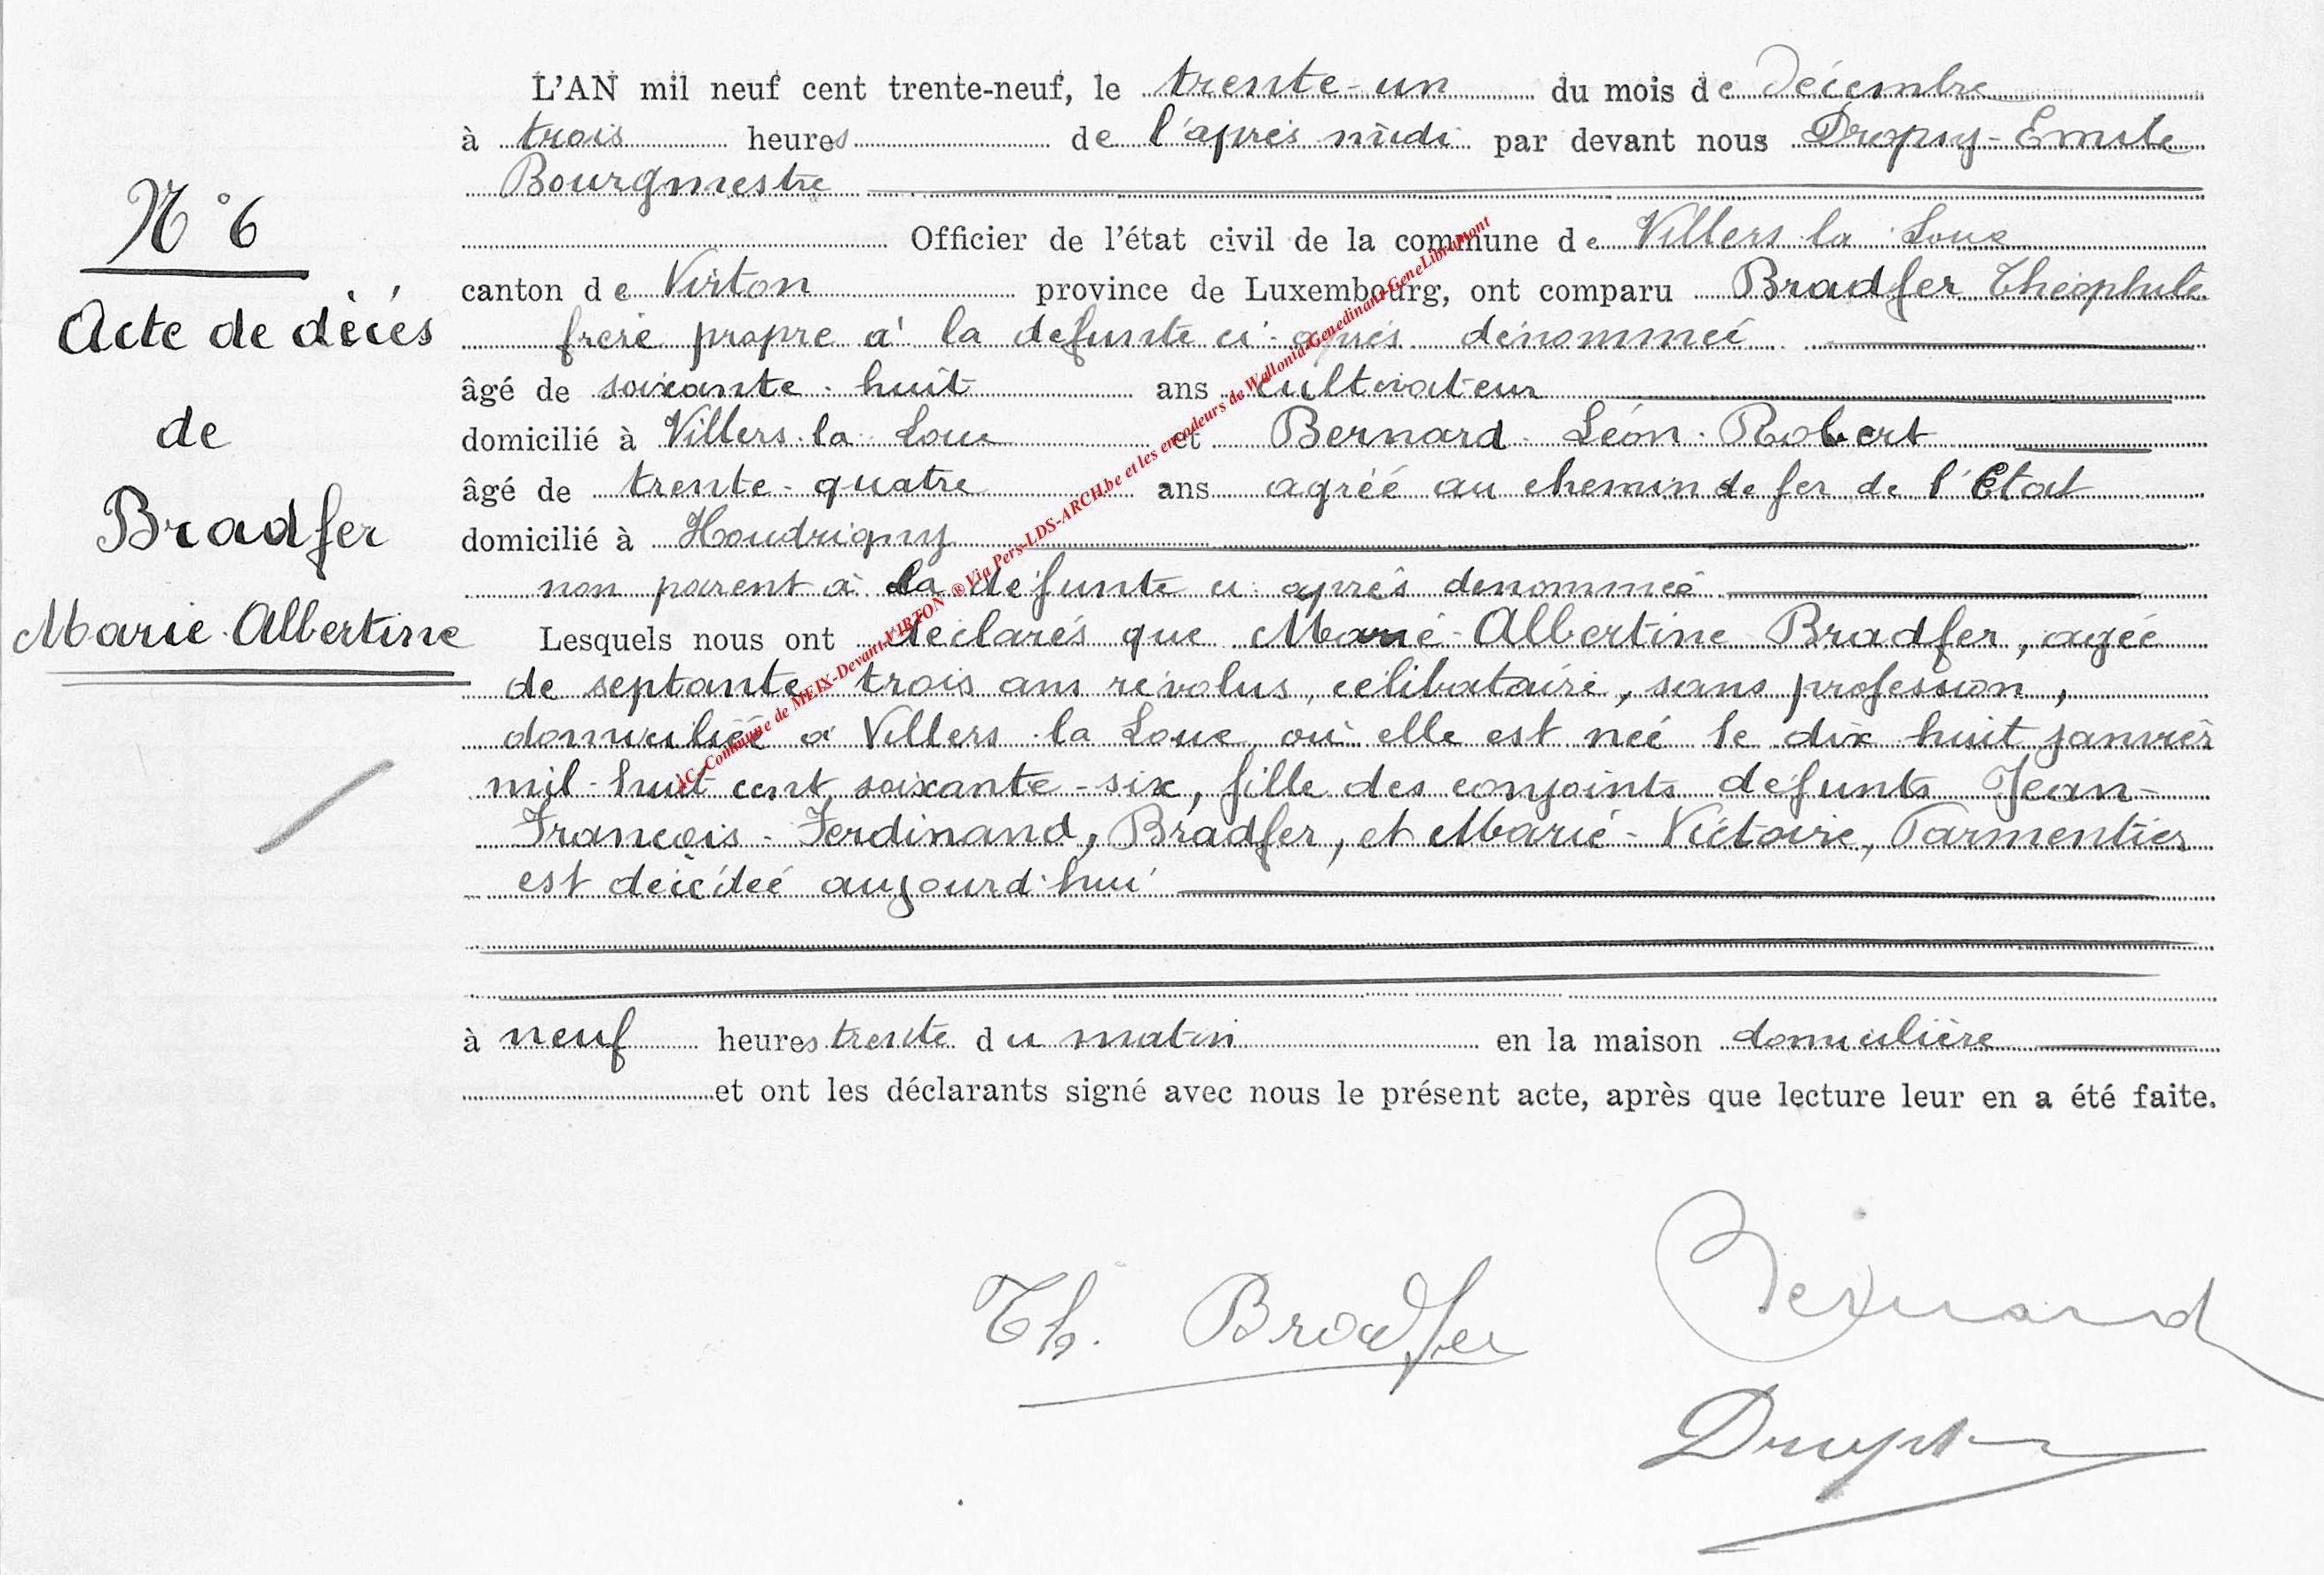 L'AN mil neuf cent trente-neuf, le trente-un du mois de décembre
à trois heures de l'après midi par devant nous Dropsy-Emile
Bourgmestre
Officier de l'état civil de la commune de Villers la Loue
canton de Virton province de Luxembourg, ont comparu Bradfer Théophile
frère propre à la défunte ci-après dénommée
âgé de soixante-huit ans cultivateur
domicilié à Villers-la-Loue et Bernard-Léon-Robert
âgé de trente-quatre ans agréé au chemin de fer de l'Etat
domicilié à Houdrigny
non parent à la défunte ci-après dénommée
Lesquels nous ont déclarés que Marie-Albertine Bradfer, agée
de septante trois ans révolus, célibataire, sans profession,
domiciliée à Villers-la-Loue où elle est née le dix huit janvier
mil-huit cent soixante-six, fille des conjoints défunts Jean-
François-Ferdinand, Bradfer, et Marie-Victoire, Parmentier
est décédée aujourd'hui
à neuf heures trente du matin en la maison domicilière
et ont les déclarants signé avec nous le présent acte, après que lecture leur en a été faite.
N° 6
Acte de décès
de
Bradfer
Marie-Albertine
AC- Commune de MEIX-Devant-VIRTON ® Via Pers-LDS-ARCH.be et les encodeurs de Wallonia-Genedinant-GeneLibramont
Th. Bradfer
Bernard
Dropsy